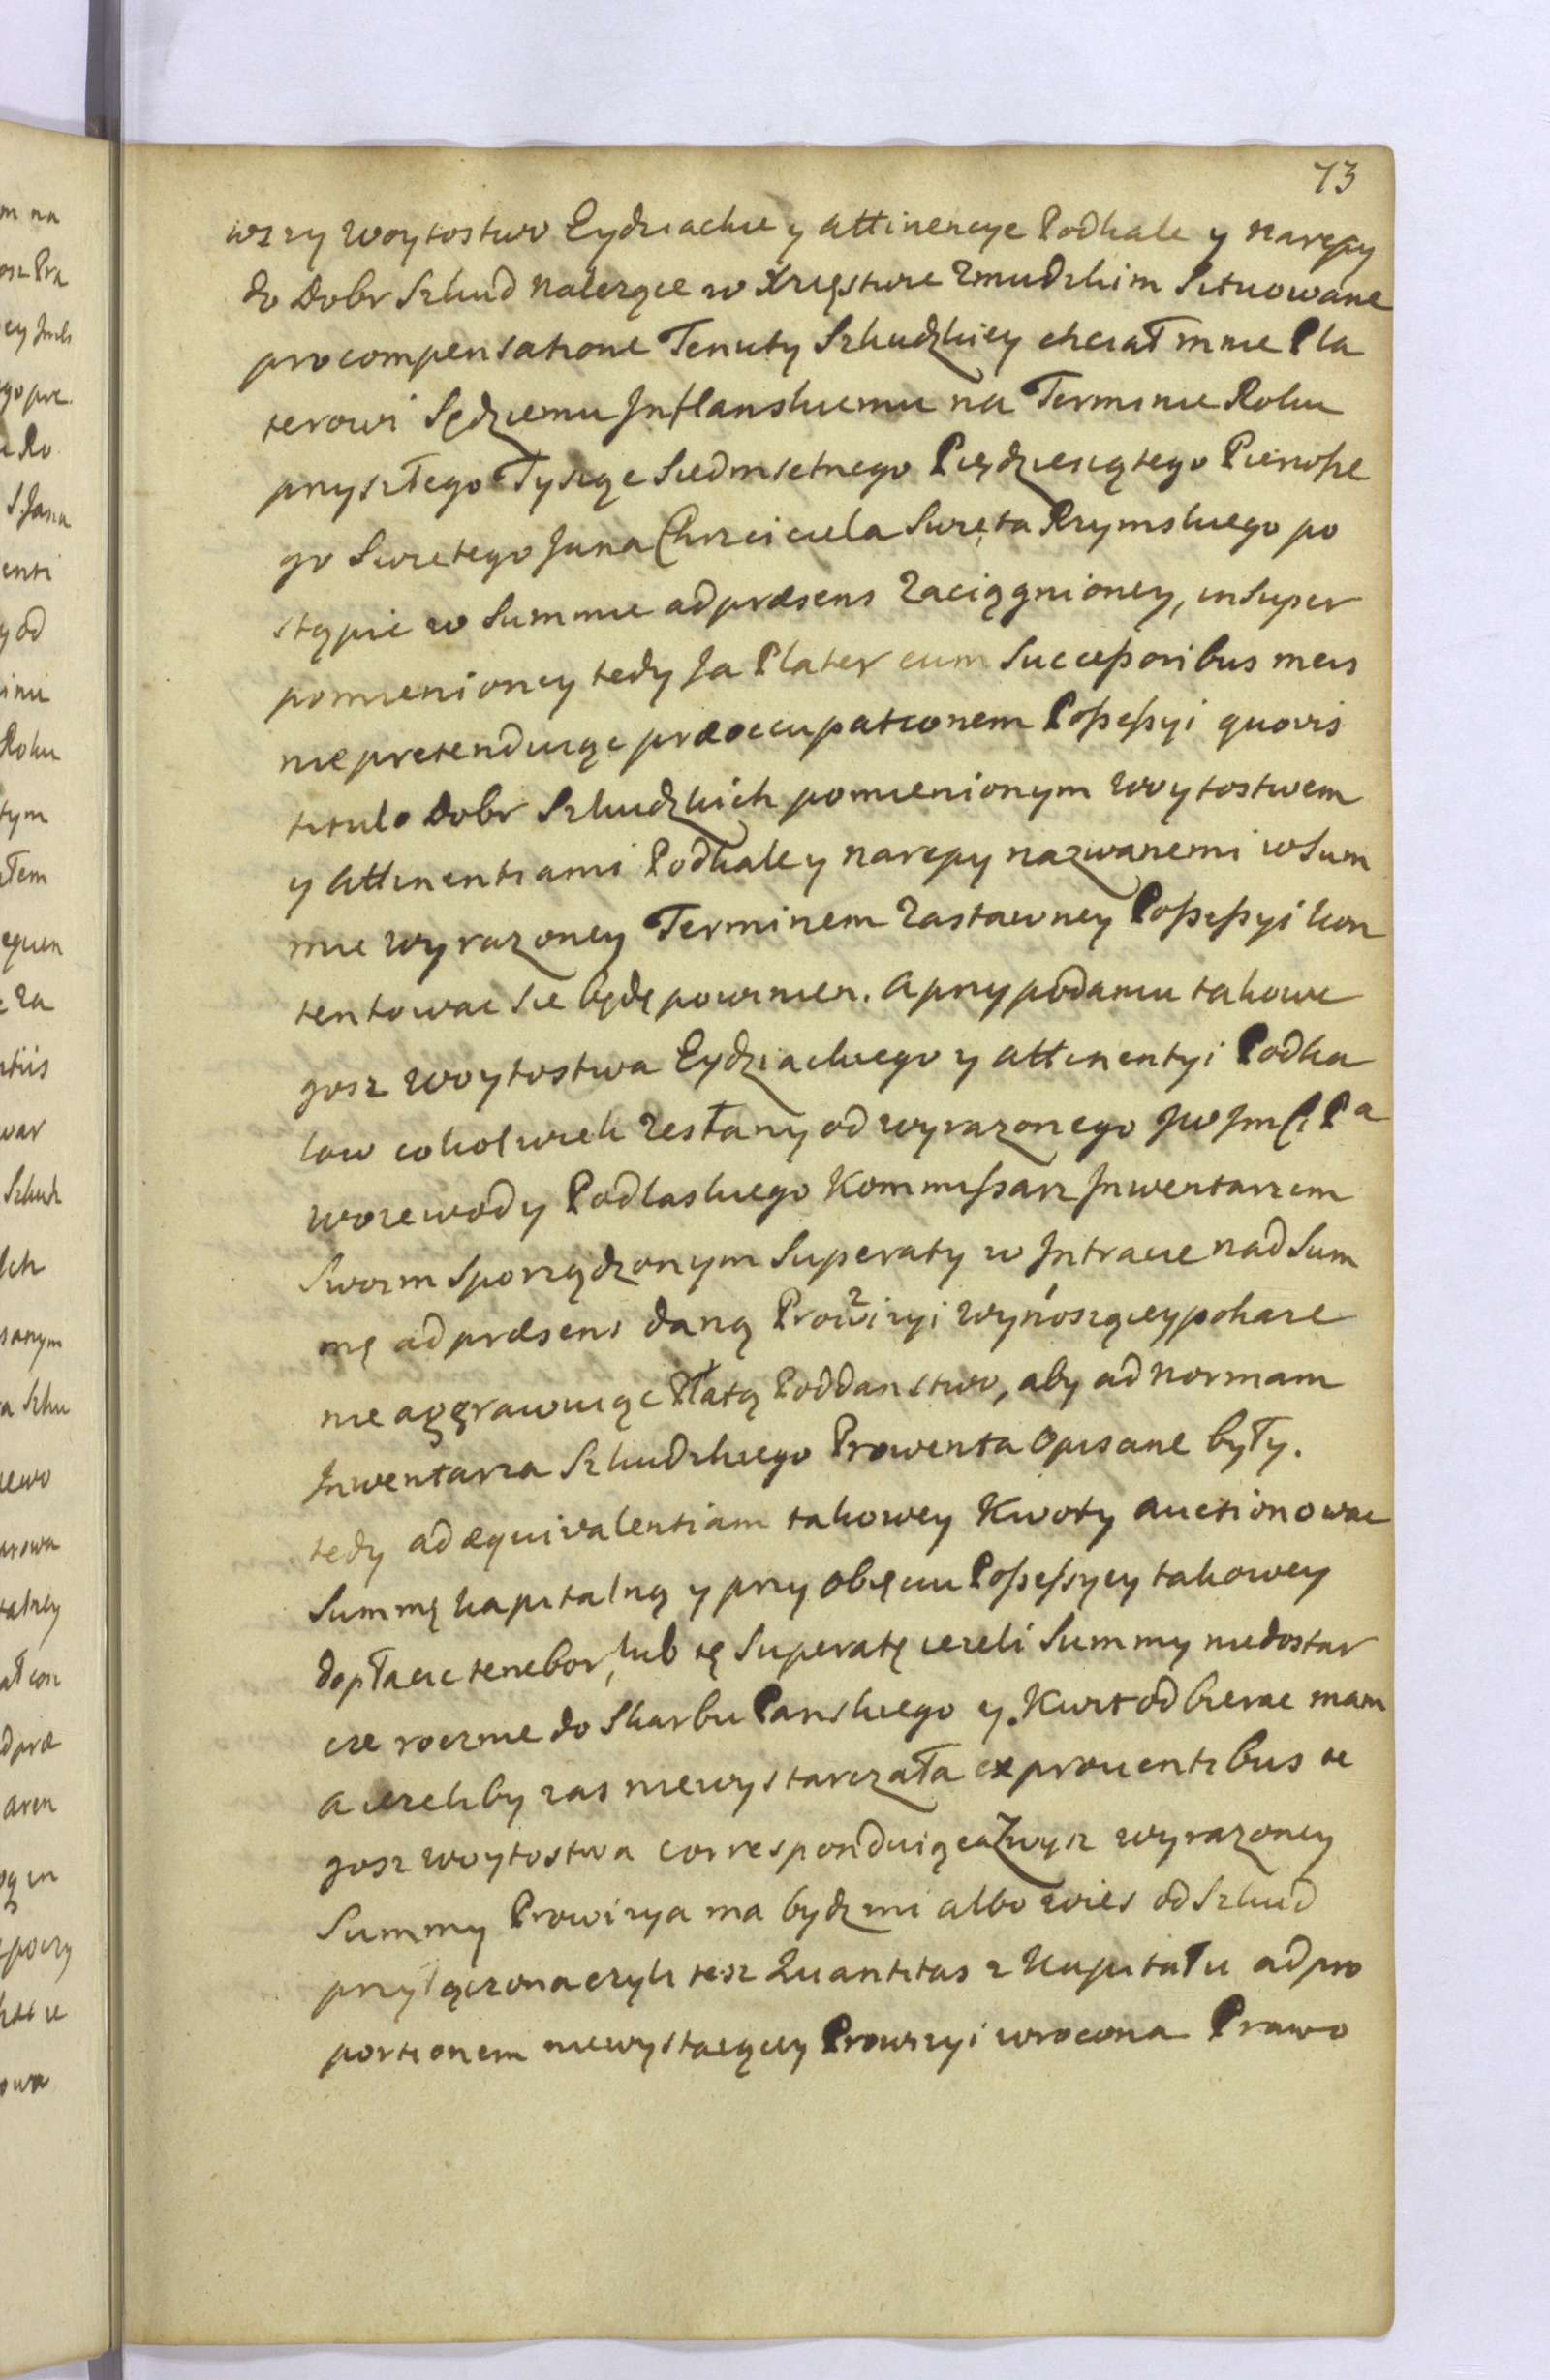 73
wszy Woytostwo Eydziackie y attinencye Podkale y Narepy
do Dobr Szkud Nalezące w Xręstwie Zmudzkim Situowane
pro compensatione Tenuty Szkudzkiey chciał mnie Pla
terowi Sędziemu Inflanskiemu na Terminie Roku
przyszłego Tysiąc Siedmsetnego Pięćdziesiątego Pierwsze
go Swietego Jana Chrzciciela Swięta Rzymskiego po
stąpic w Summie ad præsens Zaciągnioney, in super
pomienioney tedy Ja Plater cum Successoribus meis
nie pretenduiąc præoccupationem Possessyi quovis
titulo Dobr Szkudzkich pomienionym Woytostwem
y Attinentiami Podkale y Narepy nazwanemi w Sum
mie wyrazoney Terminem Zastawney Possessyi kon
tentowac sie będę powinien. A przy podaniu takowe
gosz Woytostwa Eydziackiego y Attinentyi Podka
low cokolwiek Zesłany od wyrazonego JW Jmści Pa
Woiewody Podlaskiego Kommissarz Inwentarzem
Swoim Sporządzonym Superaty w Intracie nad Sum
mę ad præsens daną Prowizyi Wynoszącey pokaze
nie aggrawuiąc Płatą Poddanstwo, aby ad Normam
Inwentarza Szkudzkiego Prowenta Opisane były.
tedy ad æquivalentiam takowey Kwoty auctionowac
Summę kapitalną y przy Obięciu Possessyey takowey
dopłacic tenebor, lub tę Superatę iezeli Summy niedostar
cze rocznie do Skarbu Panskiego y Kwit odbierac mam
a iezeliby zas niewystarczała ex proventibus te
gosz Woytostwa correspondviąca Zwysz wyrazoney
Summy Prowizya ma bydz mi albo wies od Szkud
przyłączona czyli tesz Quantitas z Kapitału ad pro
portionem niewystaiącey Prowizyi wrocona Prawo